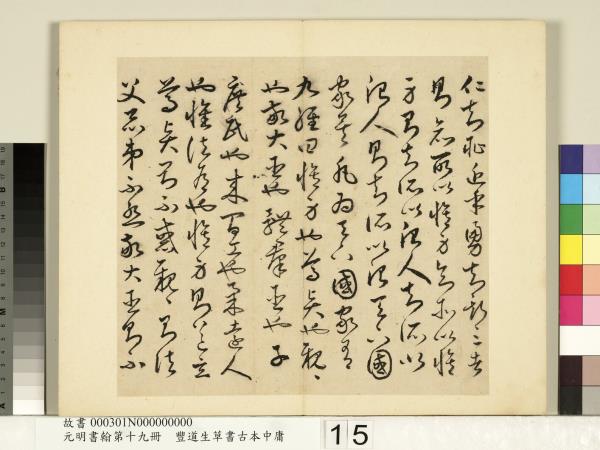 仁知恥近乎勇知斯三者
則知所以修身知所以修
身則知所以治人知所以
治人則知所以治天下國
家矣凡為天下國家有
九經曰修身也尊賢也親〻
也敬大臣也體群臣也子
庶民也來百工也柔遠人
也懷諸侯也修身則道立
尊賢則不惑親〻則諸
父昆弟不怨敬大臣則不
故書 000301N000000000
元明書翰第十九冊 豐道生草書古本中庸
15